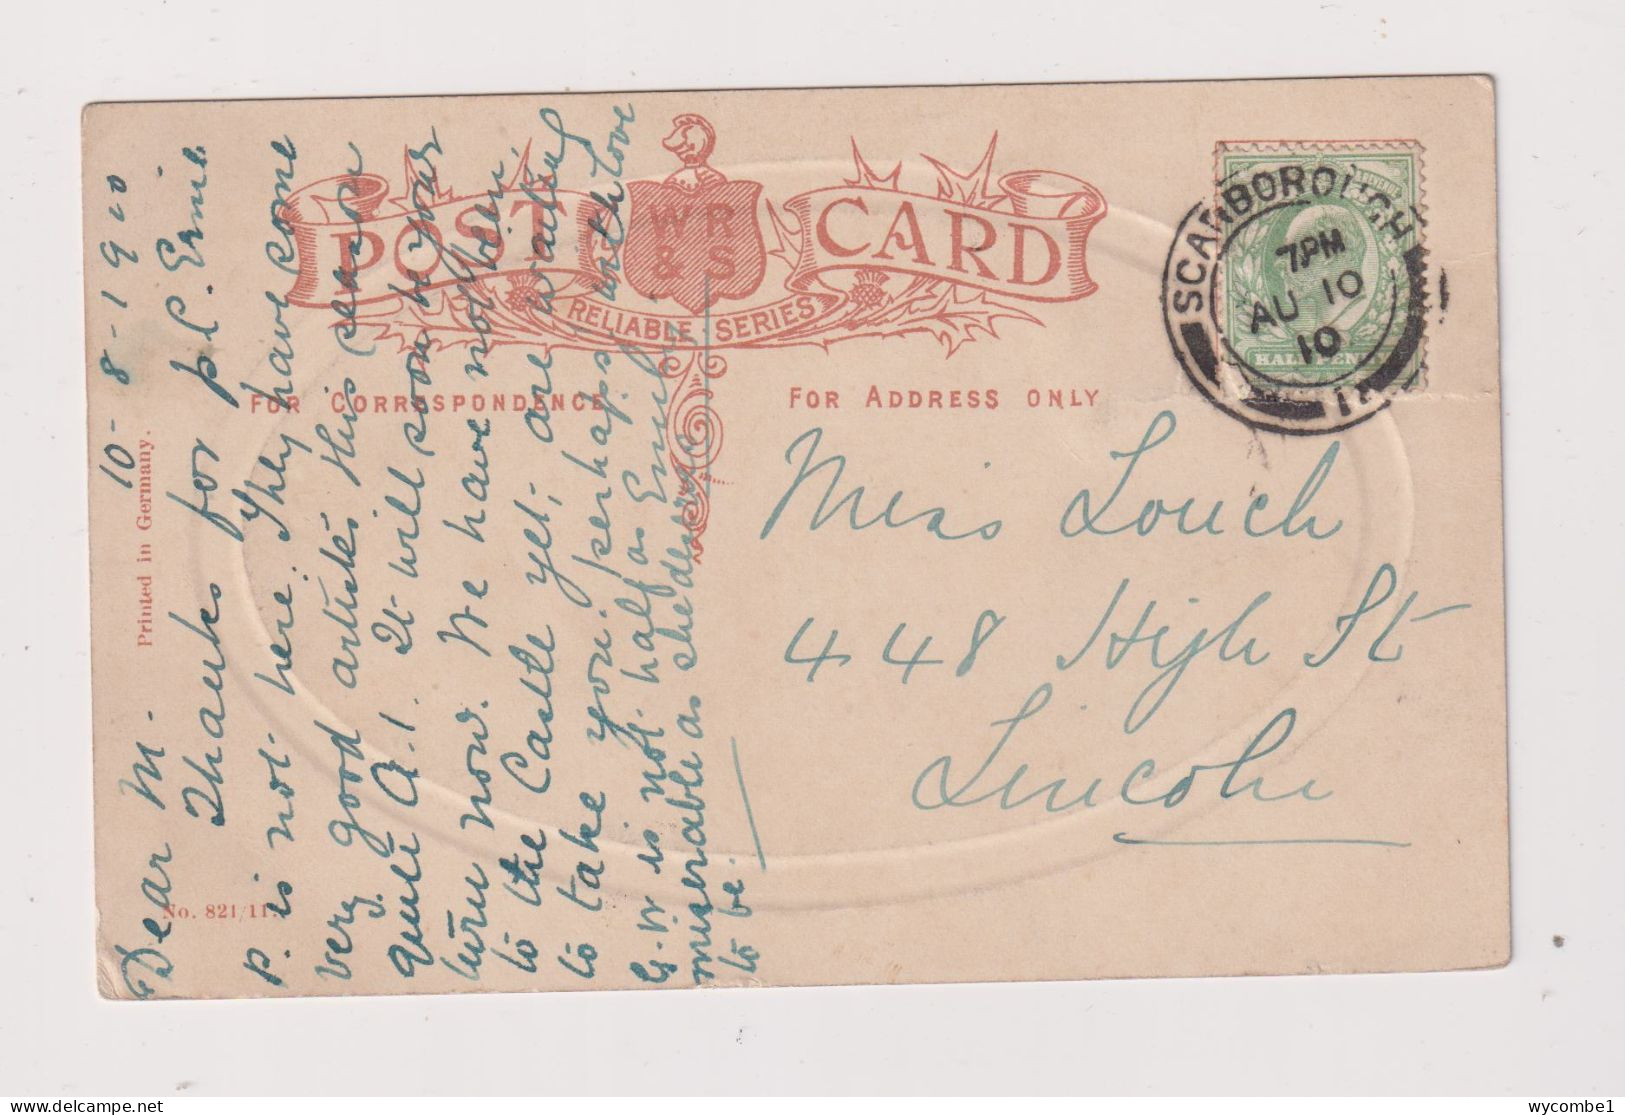 POST CARD
WR
& S
RELIABLE SERIES
FOR CORRESPONDENCE
FOR ADDRESS ONLY
SCARBOROUGH
7PM
AU 10
10
HALFPENNY
Printed in Germany.
No. 821/11.
10-8-1910
Dear M.
Thanks for p.c. Ernie
p. is not here. They have some
very good artistes this season
quite A.1. It will soon be your
turn now. We have not been
to the Castle yet; are waiting
to take you. perhaps! with love
G.W is not half as Emily
miserable as she deserve
to be.
Miss Louch
448 High St
Lincoln
wycombe1